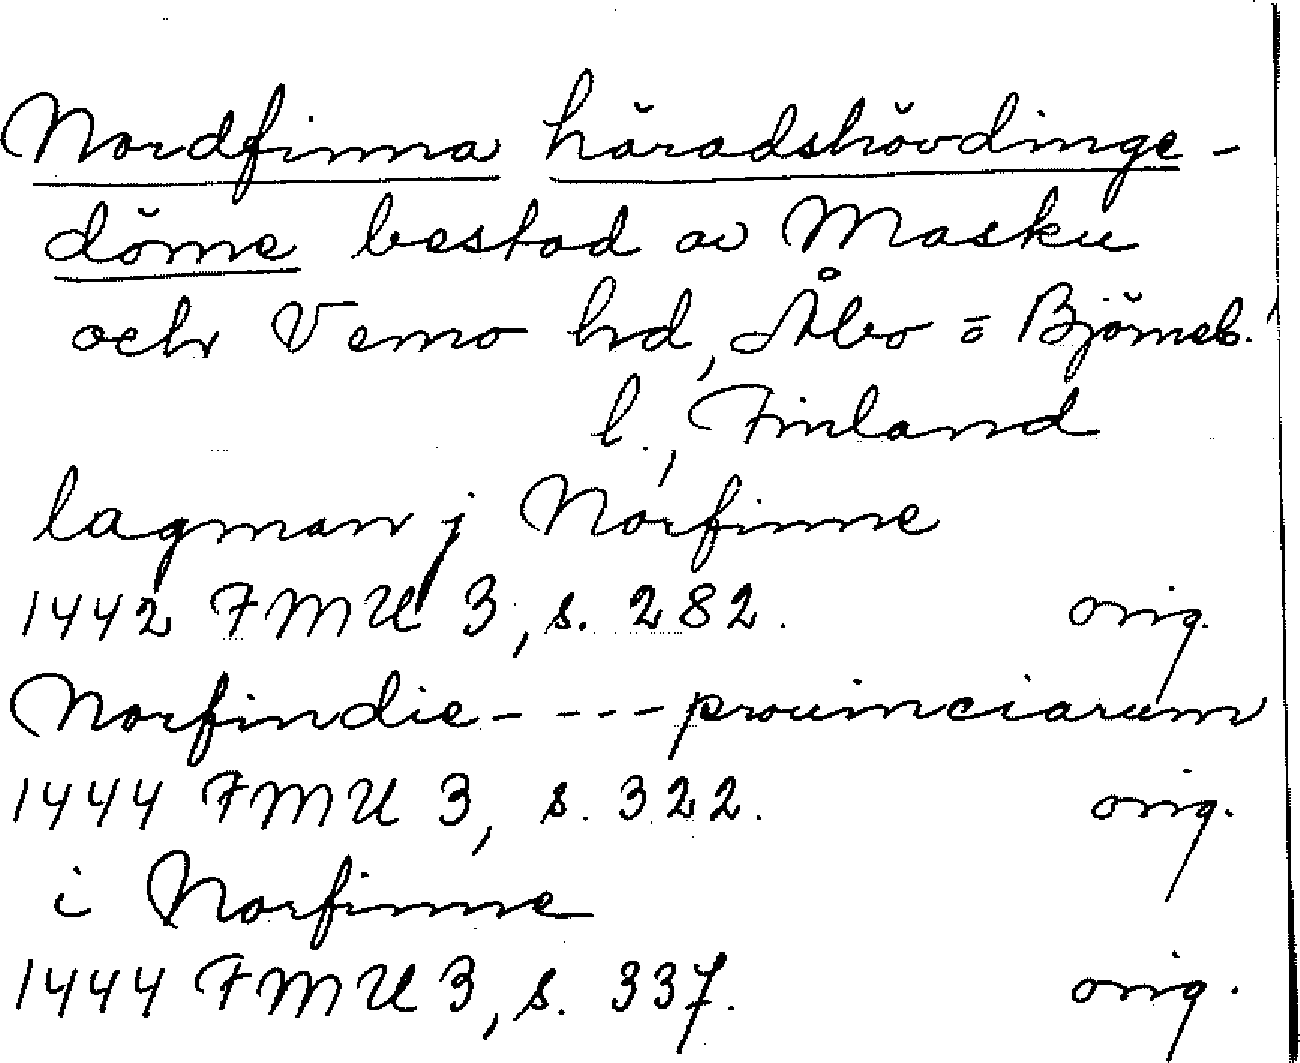 Nordfinna häradshövdinge-
döme bestod av Masku
och Vemo hd, Åbo o Björneb.
l., Finland
lagman j Norfinne
1442 FMU 3, s. 282. orig.
Norfindie - - - - prouinciarum
1444 FMU 3, s. 322. orig.
i Norfinne
1444 FMU 3, s. 337. orig.